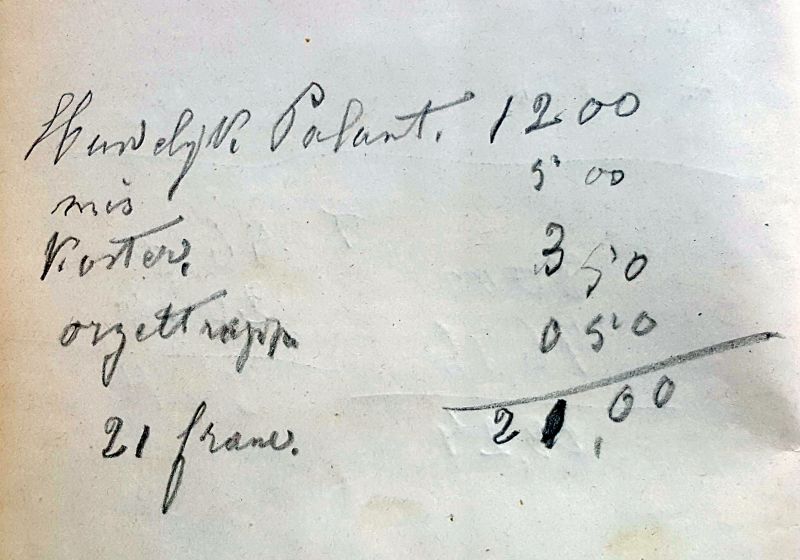 Huwelijk. Palant. 1200
mis 5 00
Koster. 3 50
orgeltrapp 0 50
21 franc. 21,00